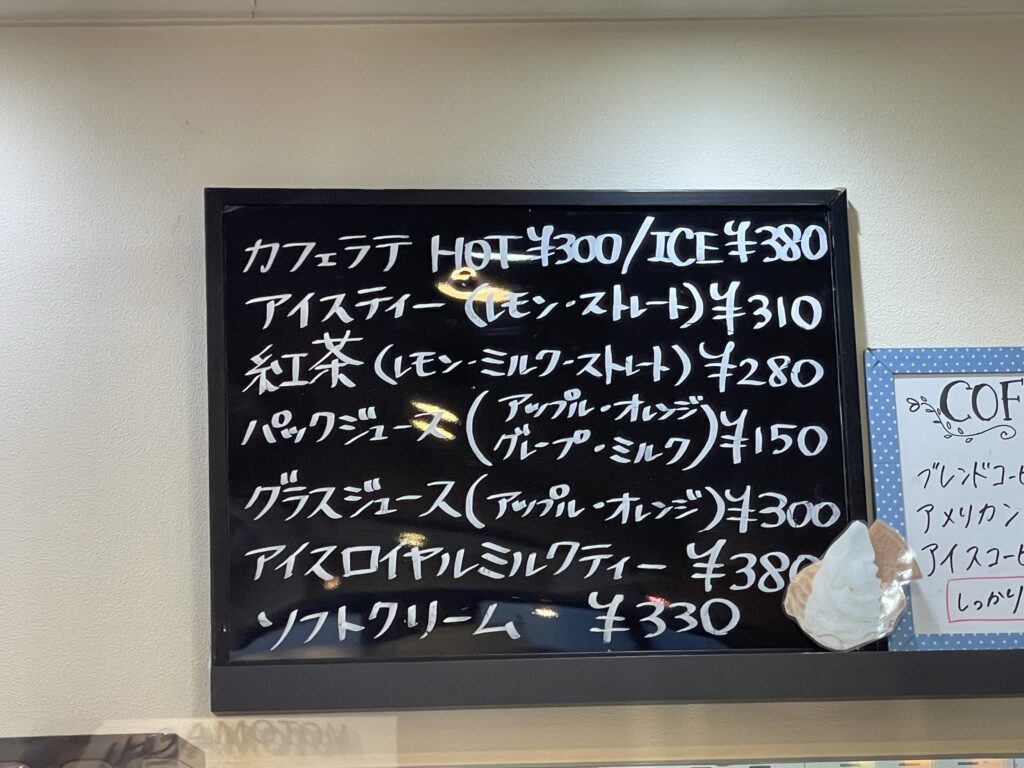 カフェラテ HOT ¥300/ICE ¥380
アイスティー (レモン・ストレート) ¥310
紅茶 (レモン・ミルク・ストレート) ¥280
パックジュース (アップル・オレンジ
グレープ・ミルク) ¥150
グラスジュース (アップル・オレンジ) ¥300
アイスロイヤルミルクティー ¥380
ソフトクリーム ¥330
COF
ブレンドコーヒ
アメリカン
アイスコーヒ
しっかり